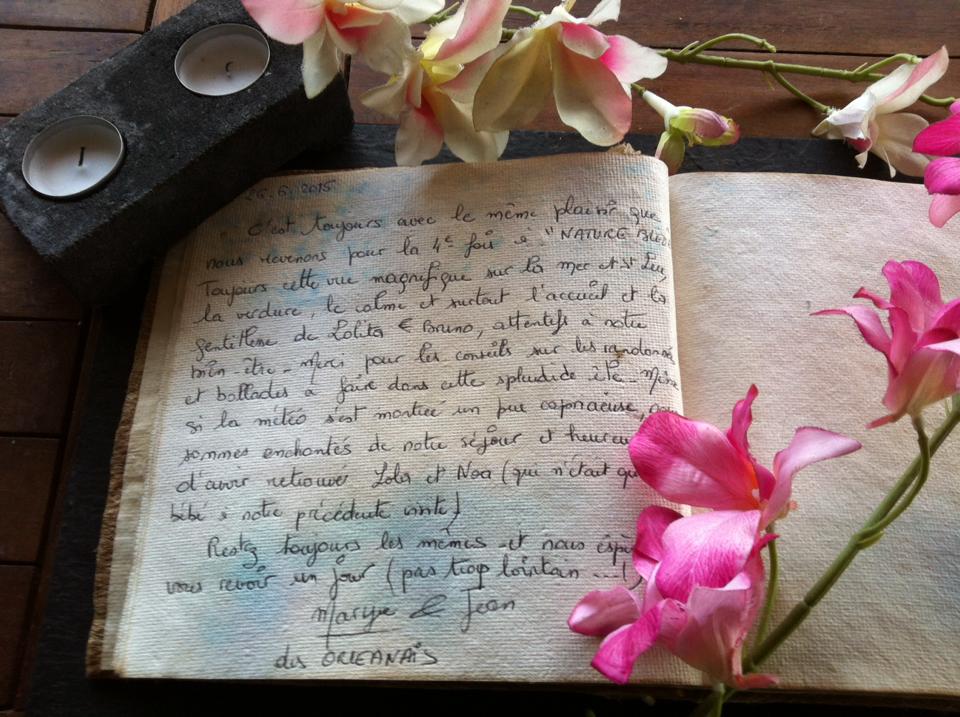 26.6.2015
C'est toujours avec le même plaisir que
nous revenons pour la 4e fois à "NATURE
Toujours cette vue magnifique sur la mer et St Leu,
la verdure, le calme et surtout l'accueil et la
gentillesse de Lolita & Bruno, attentifs à notre
bien-être - Merci pour les conseils sur les randonnées
et ballades à faire dans cette splendide île - Même
si la météo s'est montrée un peu capricieuse,
sommes enchantés de notre séjour et
d'avoir retrouvé Lola et Noa (qui n'était
bébé à notre précédente visite)
Restez toujours les mêmes et nous
vous revoir un jour (pas trop lointain ...!
Maryse & Jean
des ORLEANAIS